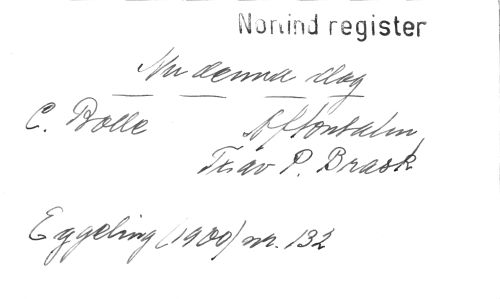 Nonind register
Nu denna dag
C. Bolle Aftonsalm
Tx: av P. Brask
Eggeling (1900) nr. 132